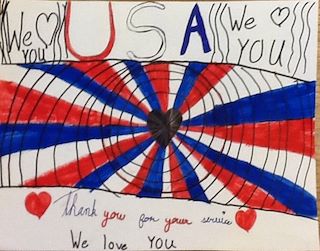 We ♡ YOU USA We ♡ YOU
Thank you for your service
We love YOU